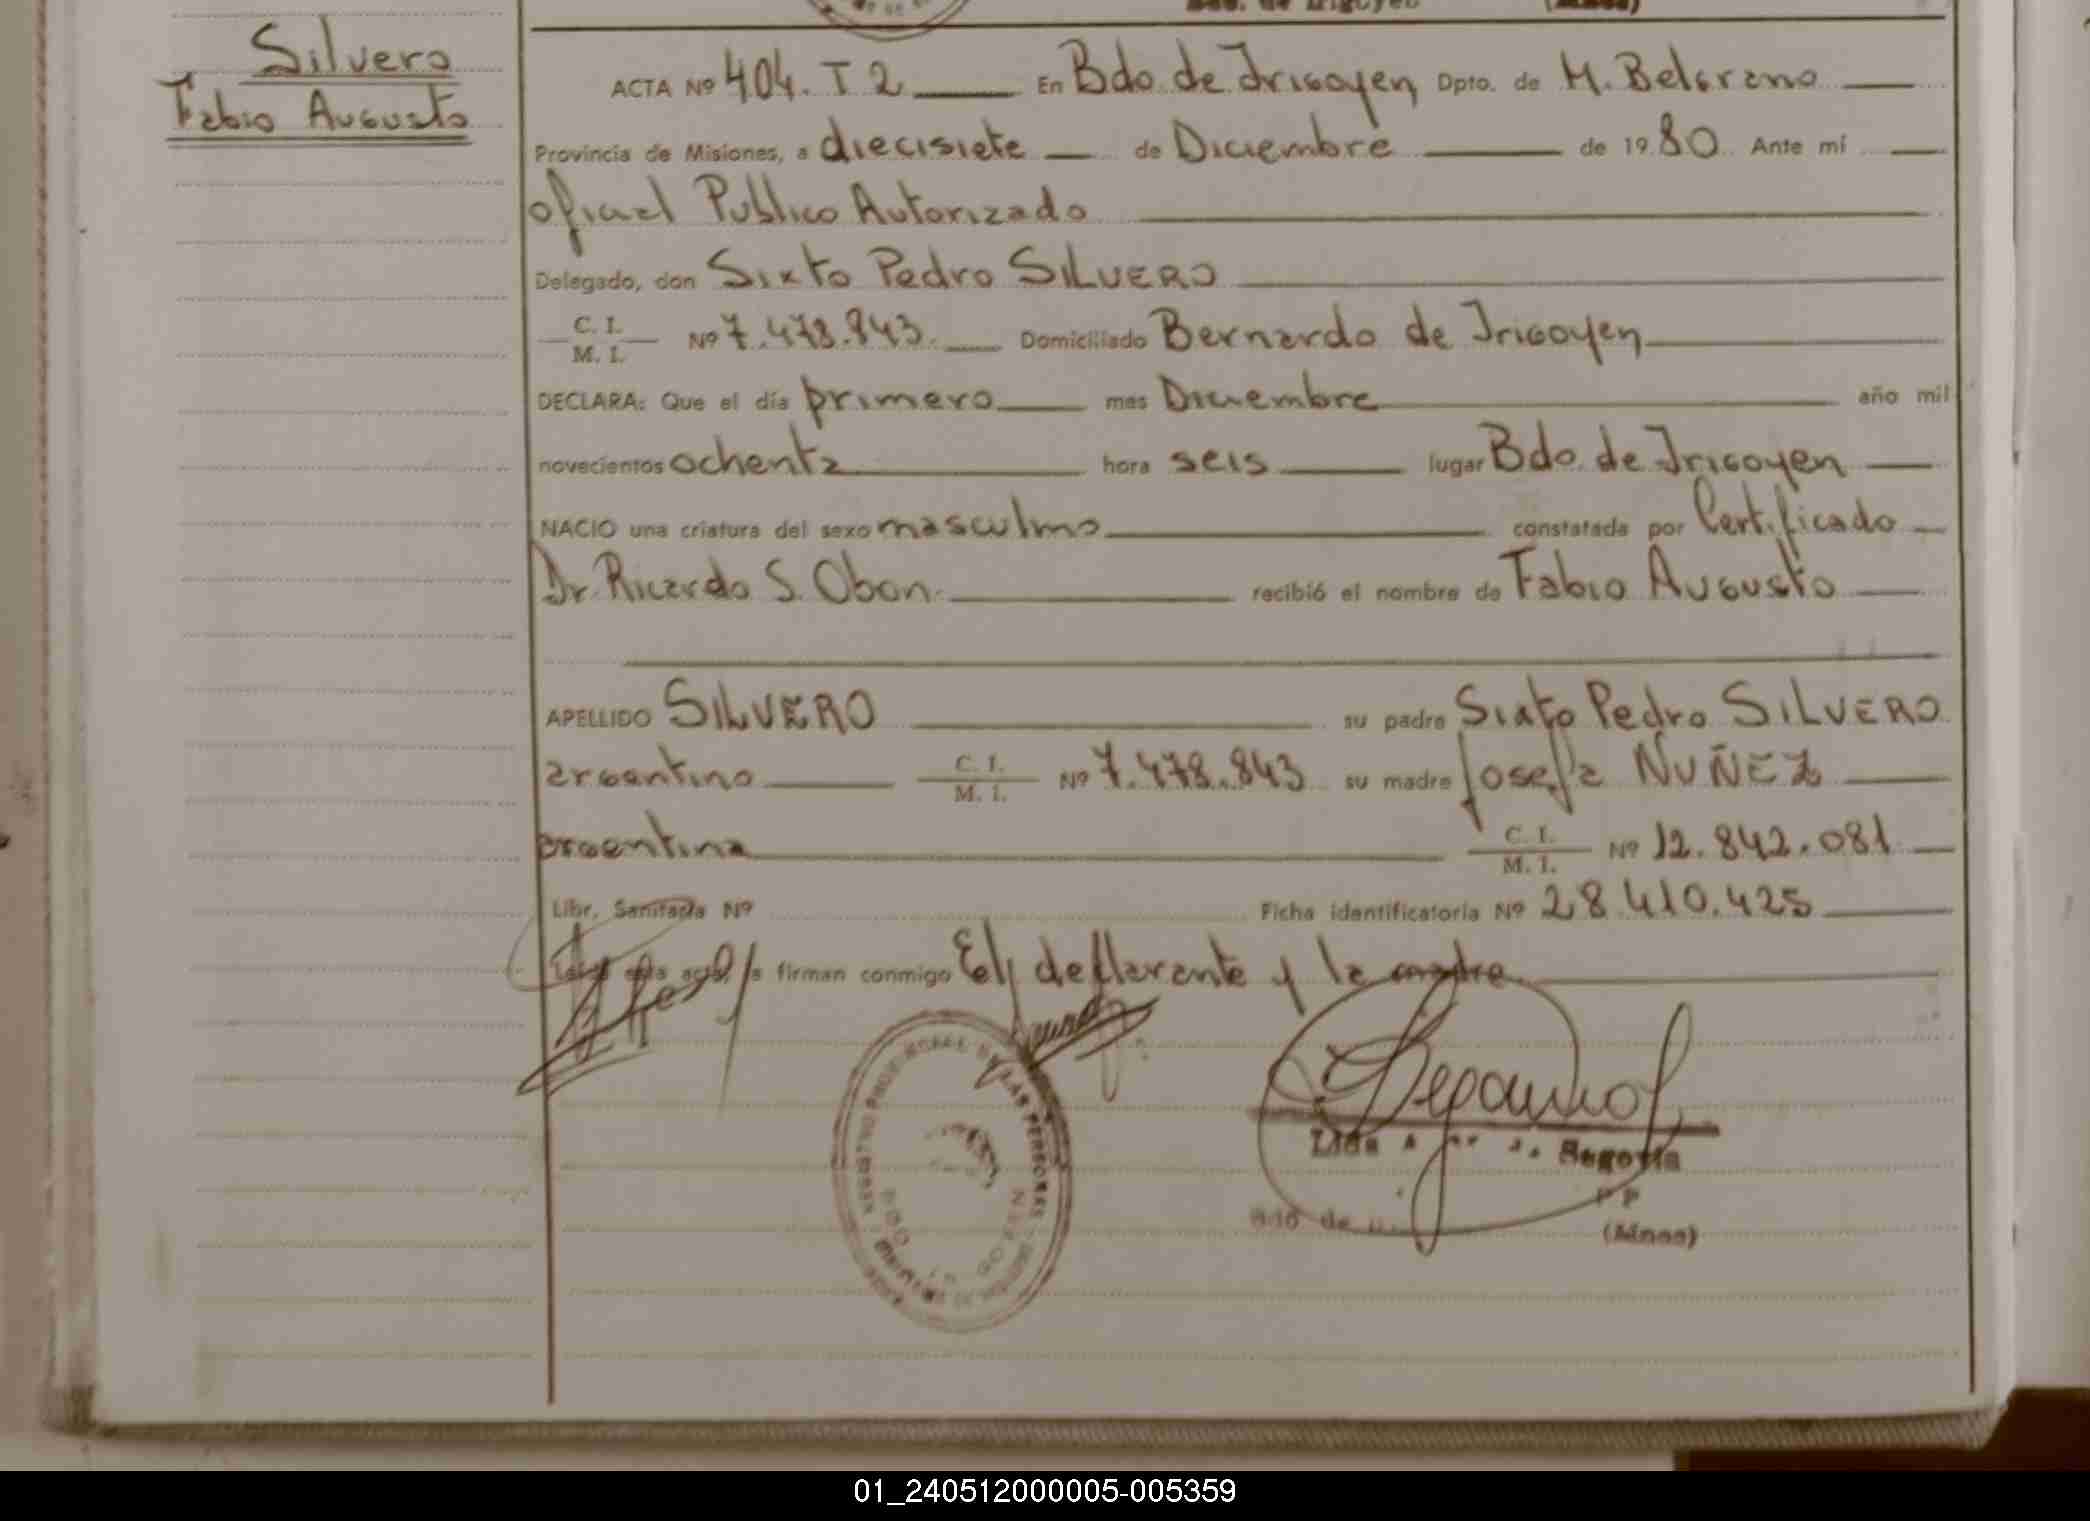 Silvero
Fabio Augusto
Bdo. de Irigoyen (Mnes)
ACTA Nº 404. T 2 En Bdo. de Irigoyen Dpto. de M. Belgrano
Provincia de Misiones, a diecisiete de Diciembre de 19 80 Ante mí
oficial Publico Autorizado
Delegado, don Sixto Pedro SILVERO
C. I. / M. I. Nº 7.478.843. Domiciliado Bernardo de Irigoyen
DECLARA: Que el día primero mes Diciembre año mil
novecientos ochenta hora seis lugar Bdo. de Irigoyen
NACIO una criatura del sexo masculino constatada por Certificado
Dr. Ricardo S. Obon. recibió el nombre de Fabio Augusto
APELLIDO SILVERO su padre Sixto Pedro SILVERO
argentino C. I. / M. I. Nº 7.478.843 su madre Josefa NUÑEZ
argentina C. I. / M. I. Nº 12.842.081
Libr. Sanitaria Nº Ficha identificatoria Nº 28.410.425
Leída esta acta, la firman conmigo El declarante y la madre
LAS PERSONAS
Segovia
(Mnes)
01_240512000005-005359